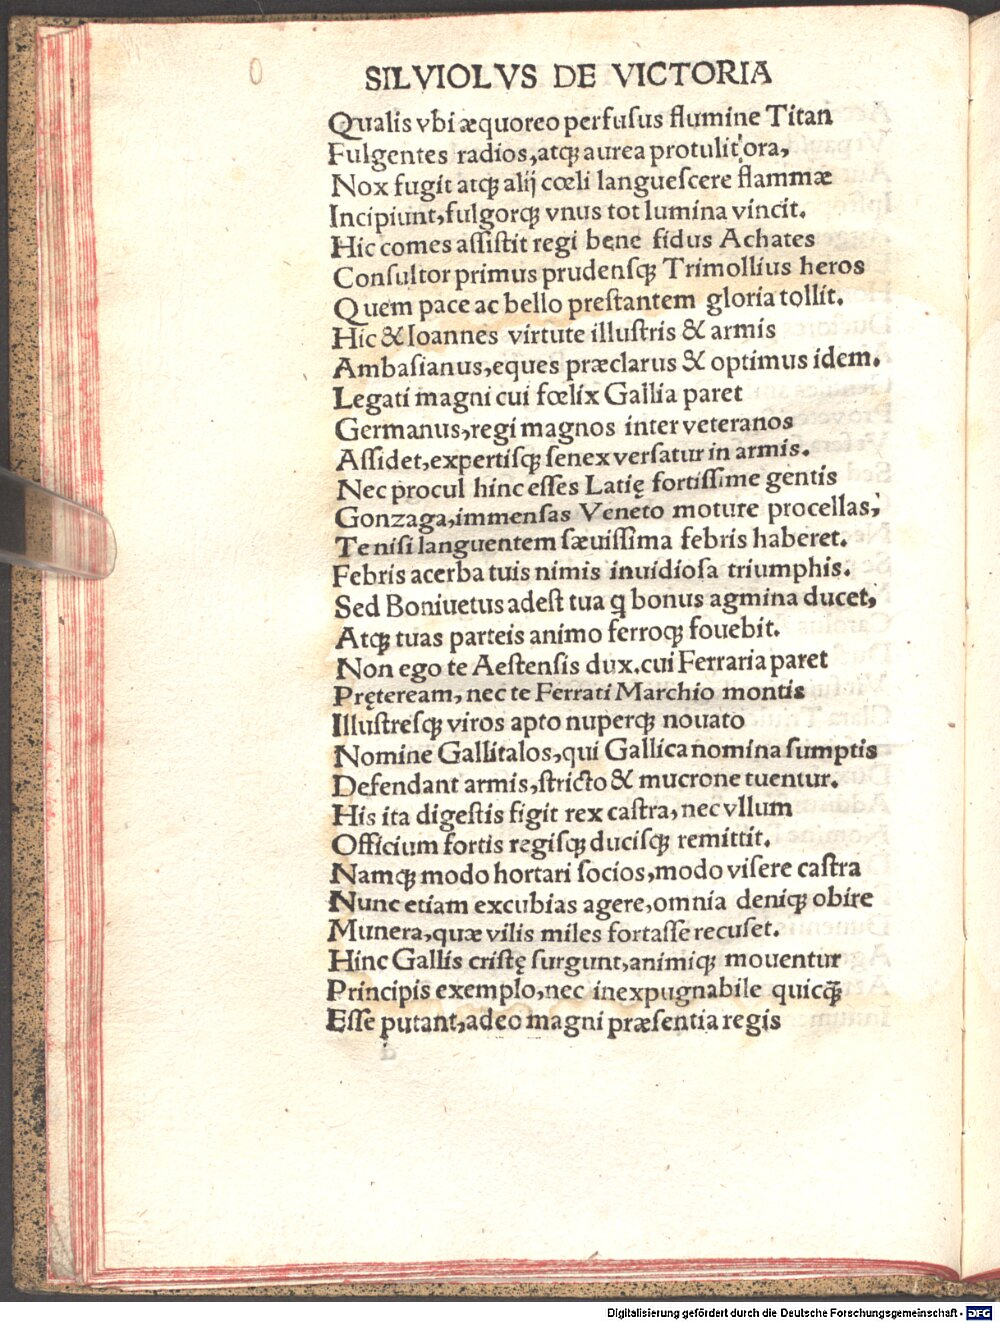 SILVIOLVS DE VICTORIA
Qualis vbi æquoreo perfusus flumine Titan
Fulgentes radios, atqꝫ aurea protulit ora,
Nox fugit atqꝫ alij cœli languescere flammæ
Incipiunt, fulgorqꝫ vnus tot lumina vincit.
Hic comes assistit regi bene fidus Achates
Consultor primus prudensqꝫ Trimollius heros
Quem pace ac bello prestantem gloria tollit.
Hic & Ioannes virtute illustris & armis
Ambasianus, eques præclarus & optimus idem.
Legati magni cui fœlix Gallia paret
Germanus, regi magnos inter veteranos
Assidet, expertisqꝫ senex versatur in armis.
Nec procul hinc esses Latię fortissime gentis
Gonzaga, immensas Veneto moture procellas,
Te nisi languentem sæuissima febris haberet.
Febris acerba tuis nimis inuidiosa triumphis.
Sed Boniuetus adest tua ꝗ bonus agmina ducet,
Atqꝫ tuas parteis animo ferroqꝫ fouebit.
Non ego te Aestensis dux. cui Ferraria paret
Pręteream, nec te Ferrati Marchio montis
Illustresqꝫ viros apto nuperqꝫ nouato
Nomine Gallitalos, qui Gallica nomina sumptis
Defendant armis, stricto & mucrone tuentur.
His ita digestis figit rex castra, nec vllum
Officium fortis regisqꝫ ducisqꝫ remittit.
Namqꝫ modo hortari socios, modo visere castra
Nunc etiam excubias agere, omnia deniqꝫ obire
Munera, quæ vilis miles fortasse recuset.
Hinc Gallis cristę surgunt, animiqꝫ mouentur
Principis exemplo, nec inexpugnabile quicꝙ̃
Esse putant, adeo magni præsentia regis
Digitalisierung gefördert durch die Deutsche Forschungsgemeinschaft - DFG